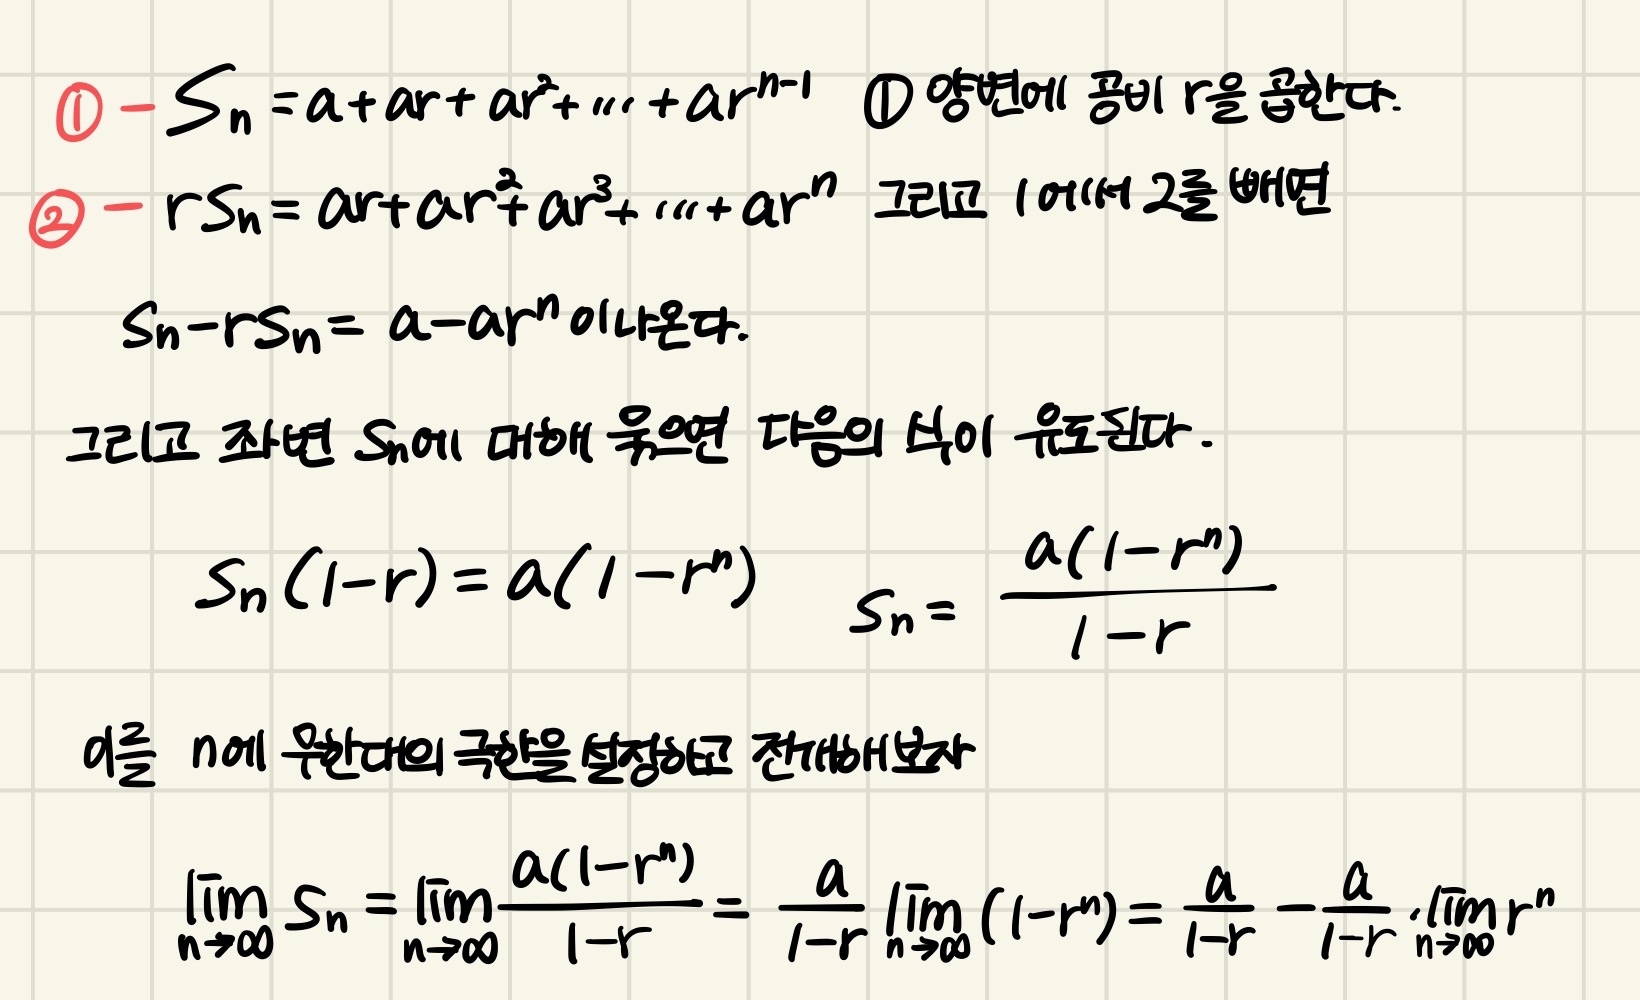 ① - Sn = a + ar + ar² + ... + ar^(n-1) ① 양변에 공비 r을 곱한다.
② - rSn = ar + ar² + ar³ + ... + ar^n 그리고 1에서 2를 빼면
Sn - rSn = a - ar^n 이 나온다.
그리고 좌변 Sn에 대해 묶으면 다음의 식이 유도된다.
Sn(1-r) = a(1-r^n) Sn = a(1-r^n) / 1-r
이를 n에 무한대의 극한을 설정하고 전개해보자
lim n→∞ Sn = lim n→∞ a(1-r^n) / 1-r = a / 1-r lim n→∞ (1-r^n) = a / 1-r - a / 1-r · lim n→∞ r^n